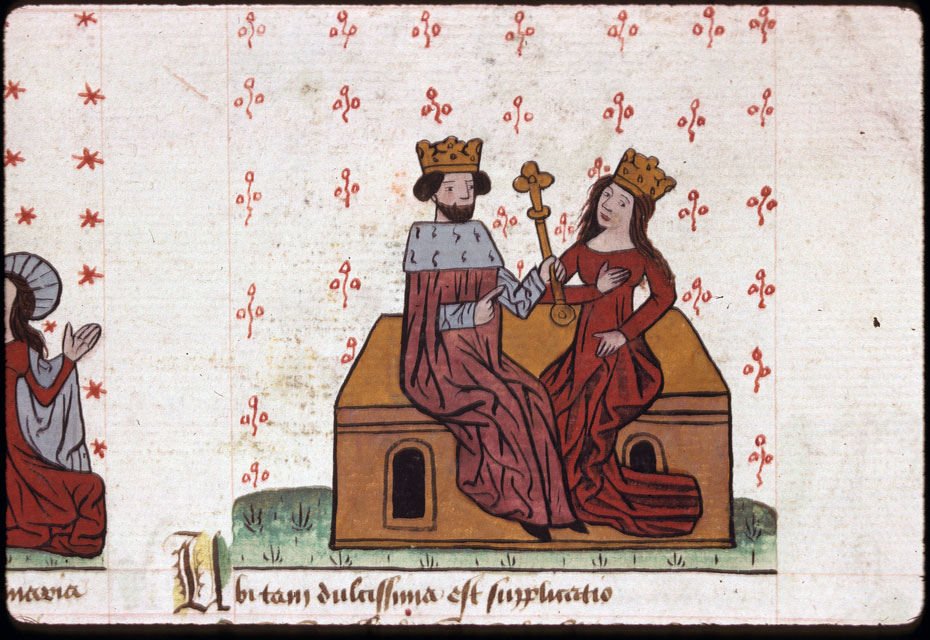 maria
Ubi tam dulcissima est supplicatio